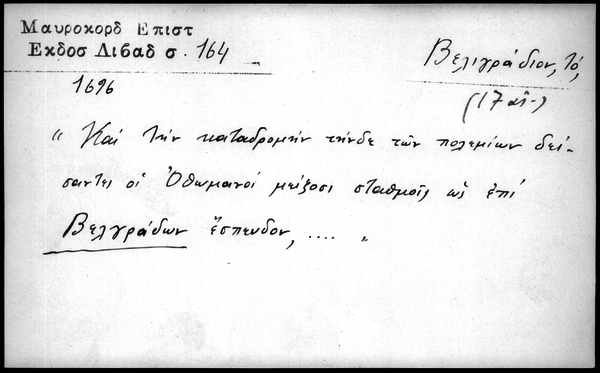 Μαυροκορδ Επιστ
Εκδοσ Λιβαδ σ. 164
Βελιγράδιον, τό,
(17 αἰ.)
1696
" Καὶ τὴν καταδρομὴν τήνδε τῶν πολεμίων δεί-
σαντες οἱ Ὀθωμανοί μείζοσι σταθμοῖς ὡς ἐπί
Βελγράδων ἔσπευδον, .... "